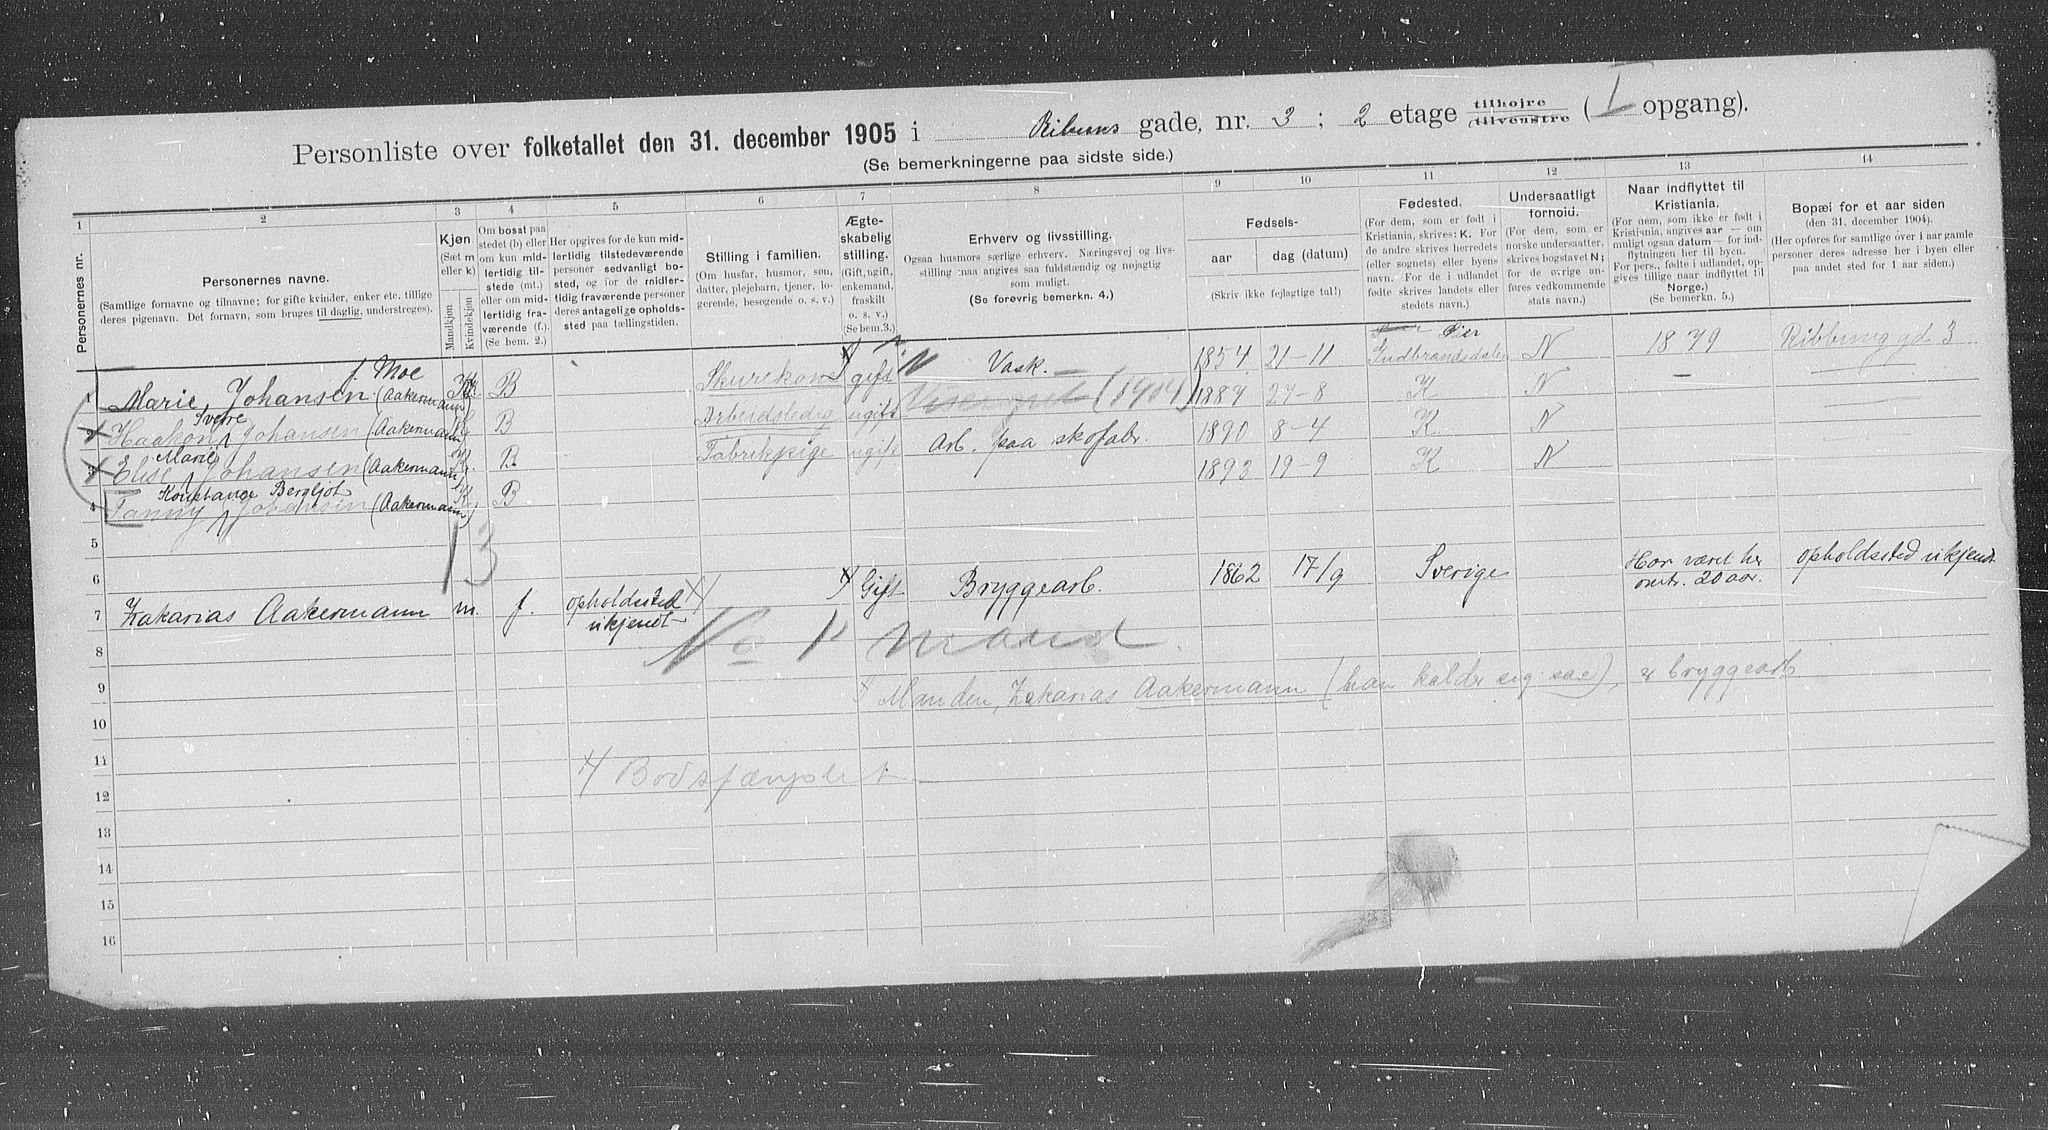 Personliste over folketallet den 31. december 1905 i Ribuns gade, nr. 3; 2 etage tilhøjre tilvenstre (I opgang).
(Se bemerkningerne paa sidste side.)
1 2 3 4 5 6 7 8 9 10 11 12 13 14
Personernes nr.
Personernes navne.
(Samtlige fornavne og tilnavne; for gifte kvinder, enker etc. tillige
deres pigenavn. Det fornavn, som bruges til daglig, understreges).
Kjøn
(Sæt m
eller k)
Mandkjøn
Kvindekjøn
Om bosat paa
stedet (b) eller
om kun mid-
lertidig til-
stede (mt.)
eller om mid-
lertidig fra-
værende (f.).
(Se bem. 2.)
Her opgives for de kun mid-
lertidig tilstedeværende
personer sedvanligt bo-
sted, og for de midler-
tidig fraværende personer
deres antagelige opholds-
sted paa tællingstiden.
Stilling i familien.
(Om husfar, husmor, søn,
datter, plejebarn, tjener, lo-
gerende, besøgende o. s. v.)
Ægte-
skabelig
stilling.
(Gift, ugift,
enkemand,
fraskilt
o. s. v.)
(Se bem. 3.)
Erhverv og livsstilling.
Ogsaa husmors særlige erhverv. Næringsvej og livs-
stilling maa angives saa fuldstændig og nøjagtig
som muligt.
(Se forøvrig bemerkn. 4.)
Fødsels-
aar
dag (datum)
(Skriv ikke fejlagtige tal!)
Fødested.
(For dem, som er født i
Kristiania, skrives: K. For
de andre skrives herredets
(eller sognets) eller byens
navn. For de i udlandet
fødte skrives landets eller
stedets navn.)
Undersaatligt
forhold.
(For dem, som er
norske undersaatter,
skrives bogstavet N;
for de øvrige an-
føres vedkommende
stats navn.)
Naar indflyttet til
Kristiania.
(For dem, som ikke er født i
Kristiania, angives aar — om
muligt ogsaa datum — for ind-
flytningen her til byen.
For pers., fødte i udlandet, op-
gives tillige naar indflyttet til
Norge.)
(Se bemerkn. 5.)
Bopæl for et aar siden
(den 31. december 1904).
(Her opføres for samtlige over 1 aar gamle
personer deres adresse her i byen eller
paa andet sted for 1 aar siden.)
1 Marie Johansen f. Moe (Aakermann) K. B Skurekone gift Vask. 1854 21-11 Gudbrandsdalen N 1879 Ribbunsgd 3
2 Haakon Sverre Johansen (Aakermann) B Arbeidsledig ugift (1404) 1884 27-8 K N
3 Elise Marie Johansen (Aakermann) K. B Fabrikpige ugift Arb. paa skofabr. 1890 8-4 K N
4 Fanny Konstanse Bergljot Johansen (Aakermann) K B 1893 19-9 K N
5
13
6
7 Zakarias Aakermann m. f. opholdssted ukjendt x) x) Gift Bryggearb. 1862 17/9 Sverige Har været her omtr. 20 aar. Opholdssted ukjendt
No 1 mand
8
9 x) Manden, Zakarias Aakermann (han kalder sig saa), er bryggearb
10
11 x) Bodsfængslet
12
13
14
15
16